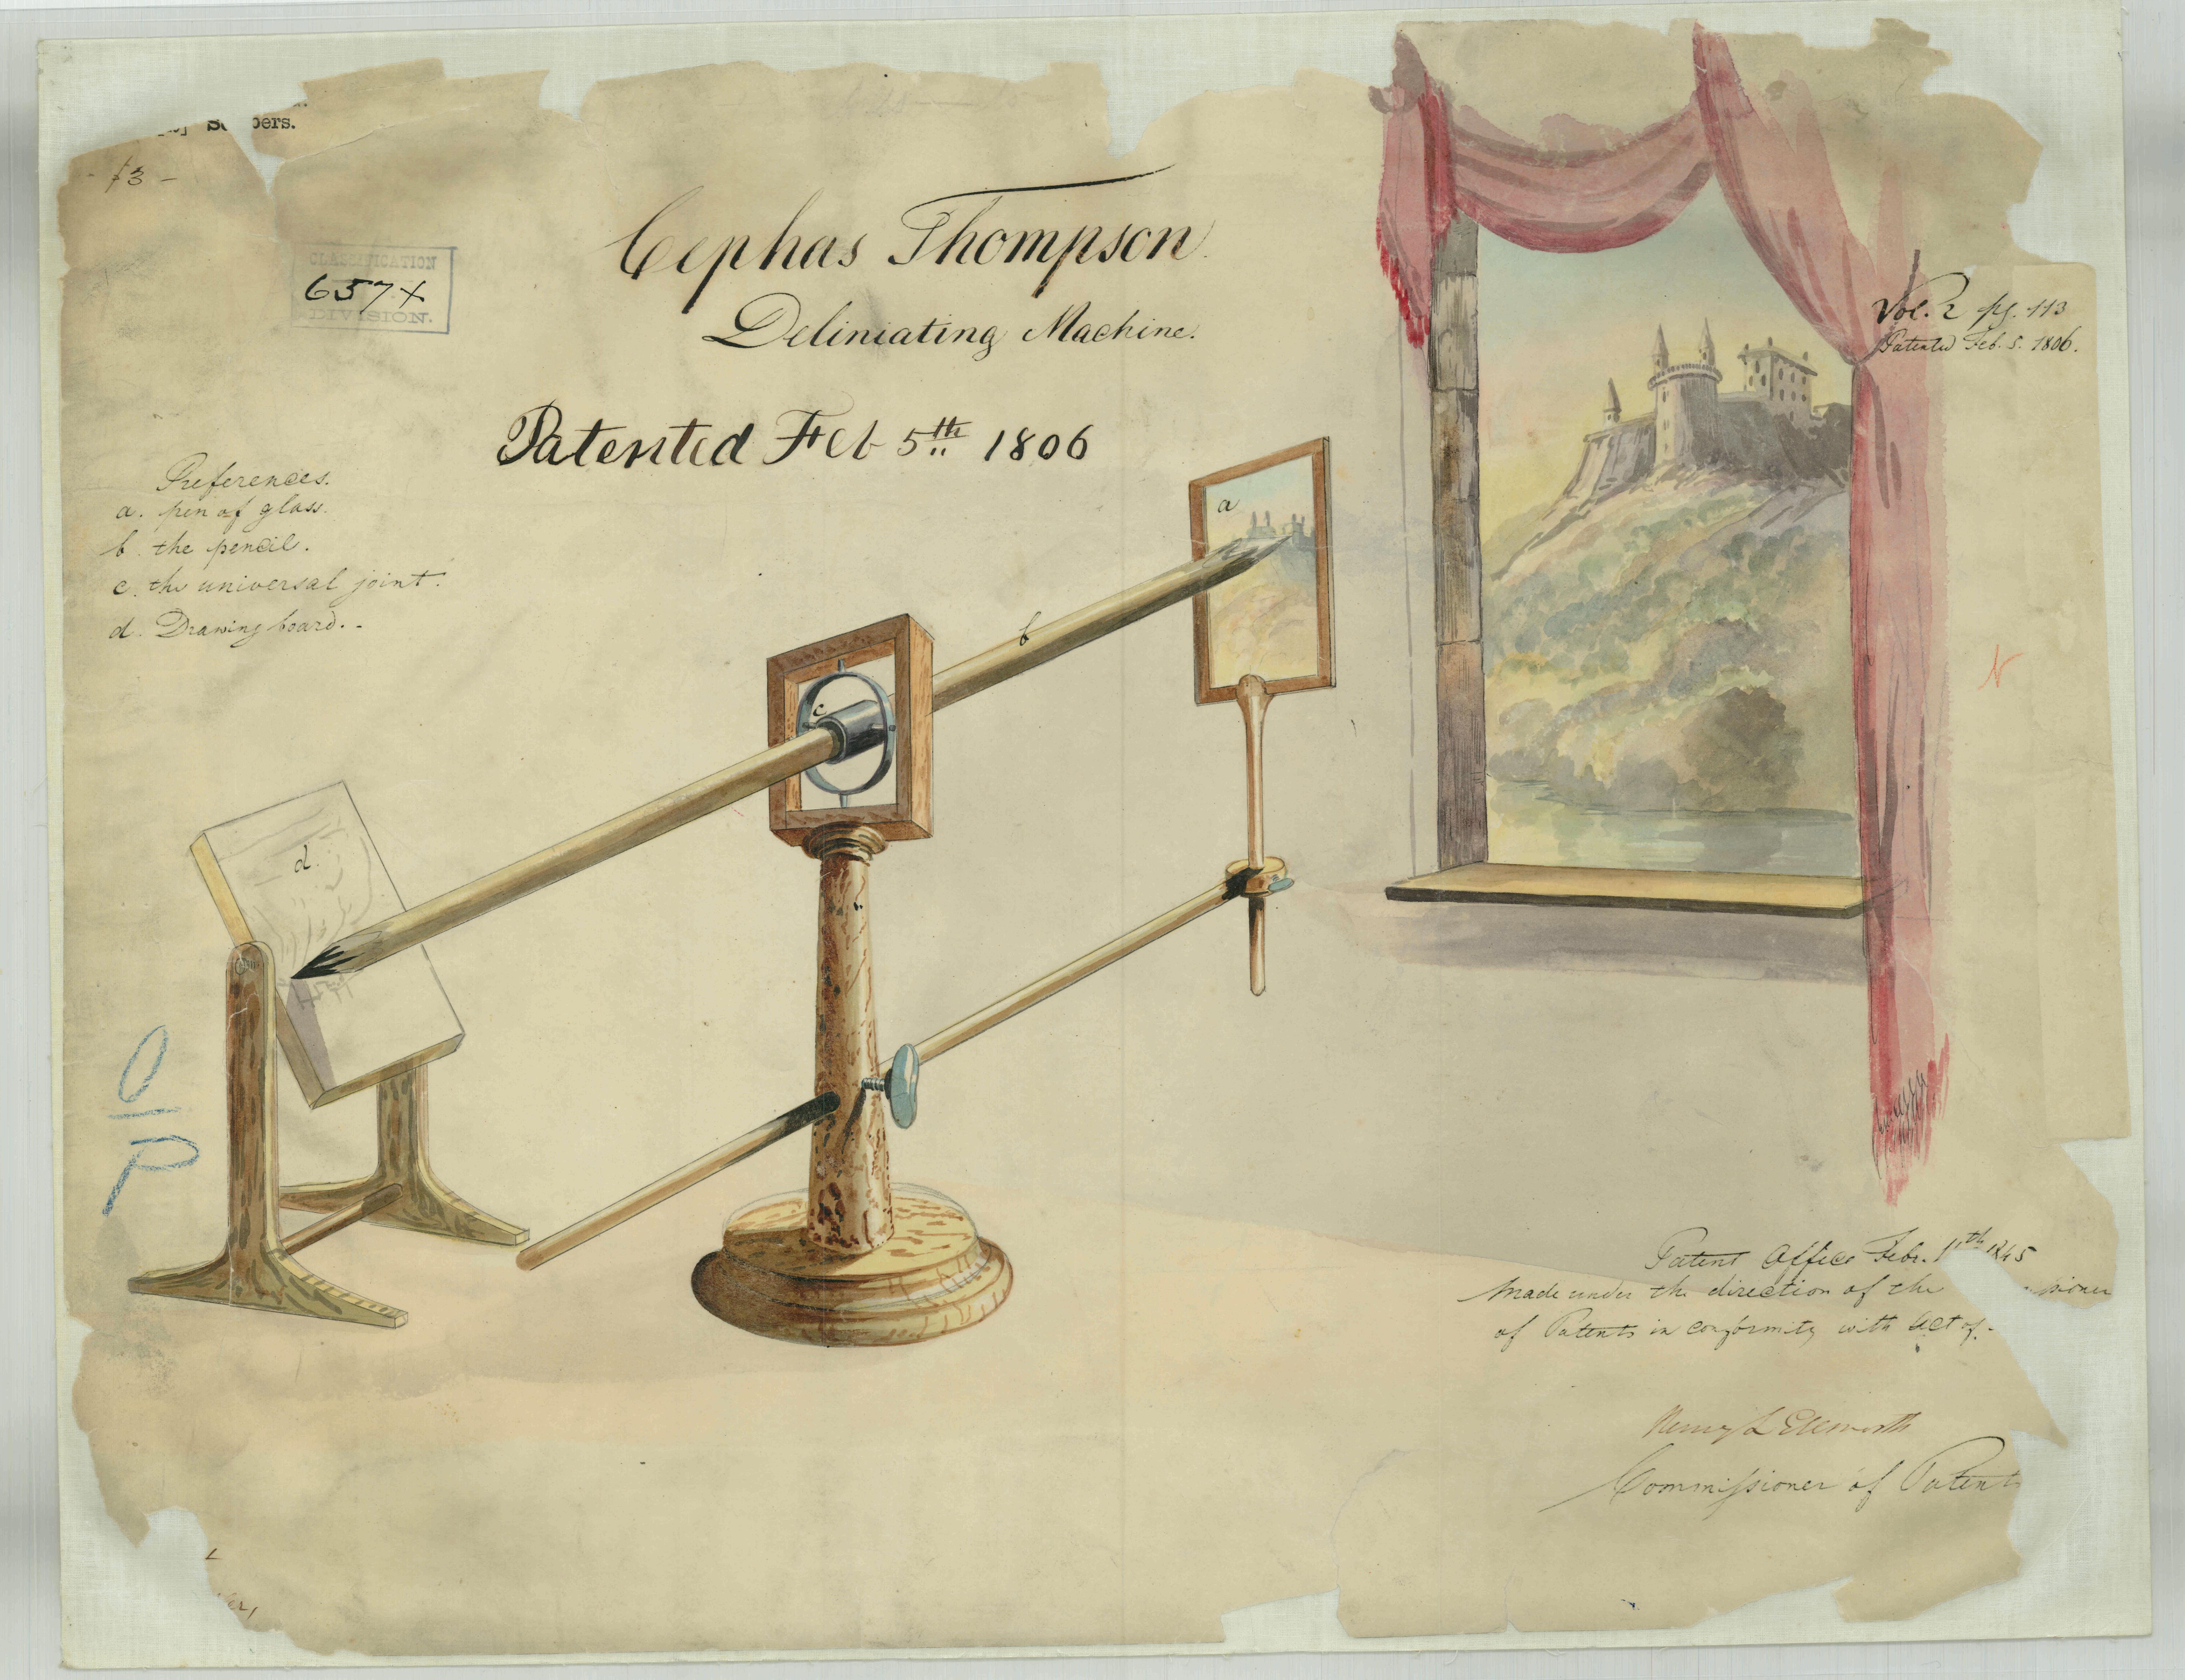 - 13 -
CLASSIFICATION
657X
DIVISION.
Cephas Thompson.
Deliniating Machine.
Patented Feb 5th 1806
Vol. 2 pg. 113
Patented Feb. 5. 1806.
References.
a. pen of glass.
b. the pencil.
c. the universal joint.
d. Drawing board.
a
b
c
d.
O
P
Patent Office Febr. 11th 1845
Made under the direction of the
of Patents in conformity with Act of
Henry L Ellsworth
Commissioner of Patents